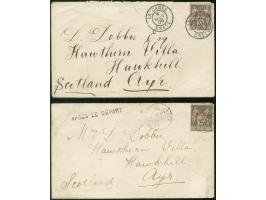 LE CAIRE
L. Dobbie Esq
Hawthorn Villa,
Hawkhill,
Scotland Ayr.
APRÈS LE DÉPART
Mrs D. Dobbie
Hawthorn Villa
Hawkhill,
Scotland Ayr